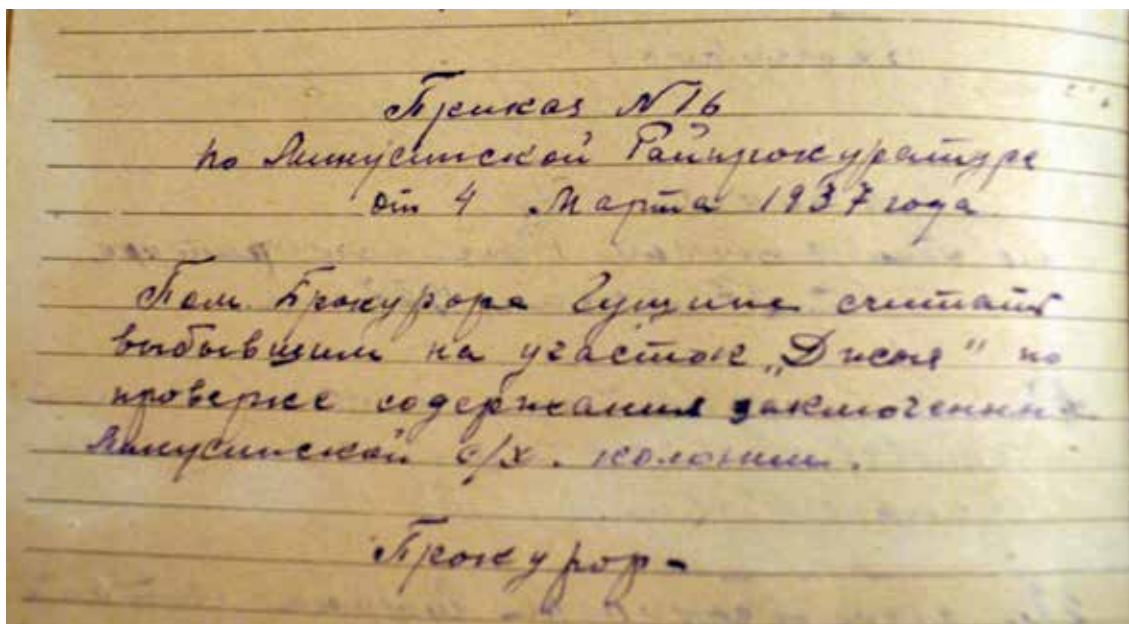 Приказ №16
по Минусинской Райпрокуратуре
от 4 Марта 1937 года
Пом. Прокурора Гущина считать
выбывшим на участок „Джоя" по
проверке содержания заключенных
Минусинской с/х. колонии.
Прокурор-